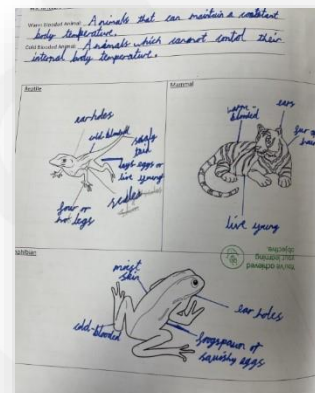 Warm Blooded Animal: Animals that can maintain a constant
body temperature.
Cold Blooded Animal: Animals which cannot control their
internal body temperature.
Reptile
ear holes
cold blooded
scaly
lays eggs or
live young
scales
four or
no legs
Mammal
warm-
blooded
ears
fur or
hair
live young
You've achieved
your learning
objective.
moist
skin
ear holes
cold-blooded
frogspawn or
squishy eggs